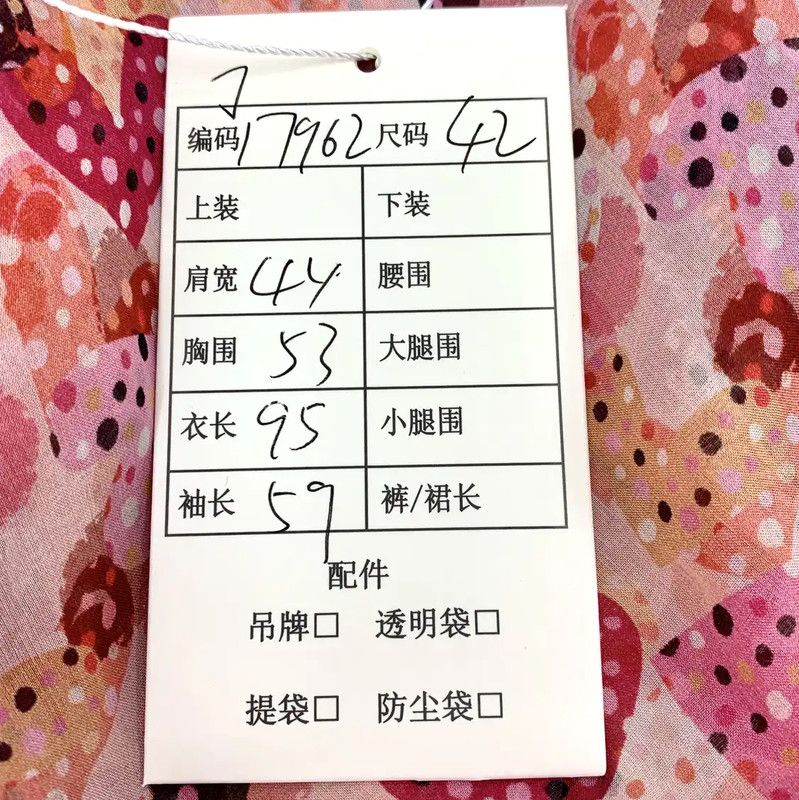 编码 17962 尺码 42
上装 下装
肩宽 44 腰围
胸围 53 大腿围
衣长 95 小腿围
袖长 59 裤/裙长
配件
吊牌□ 透明袋□
提袋□ 防尘袋□